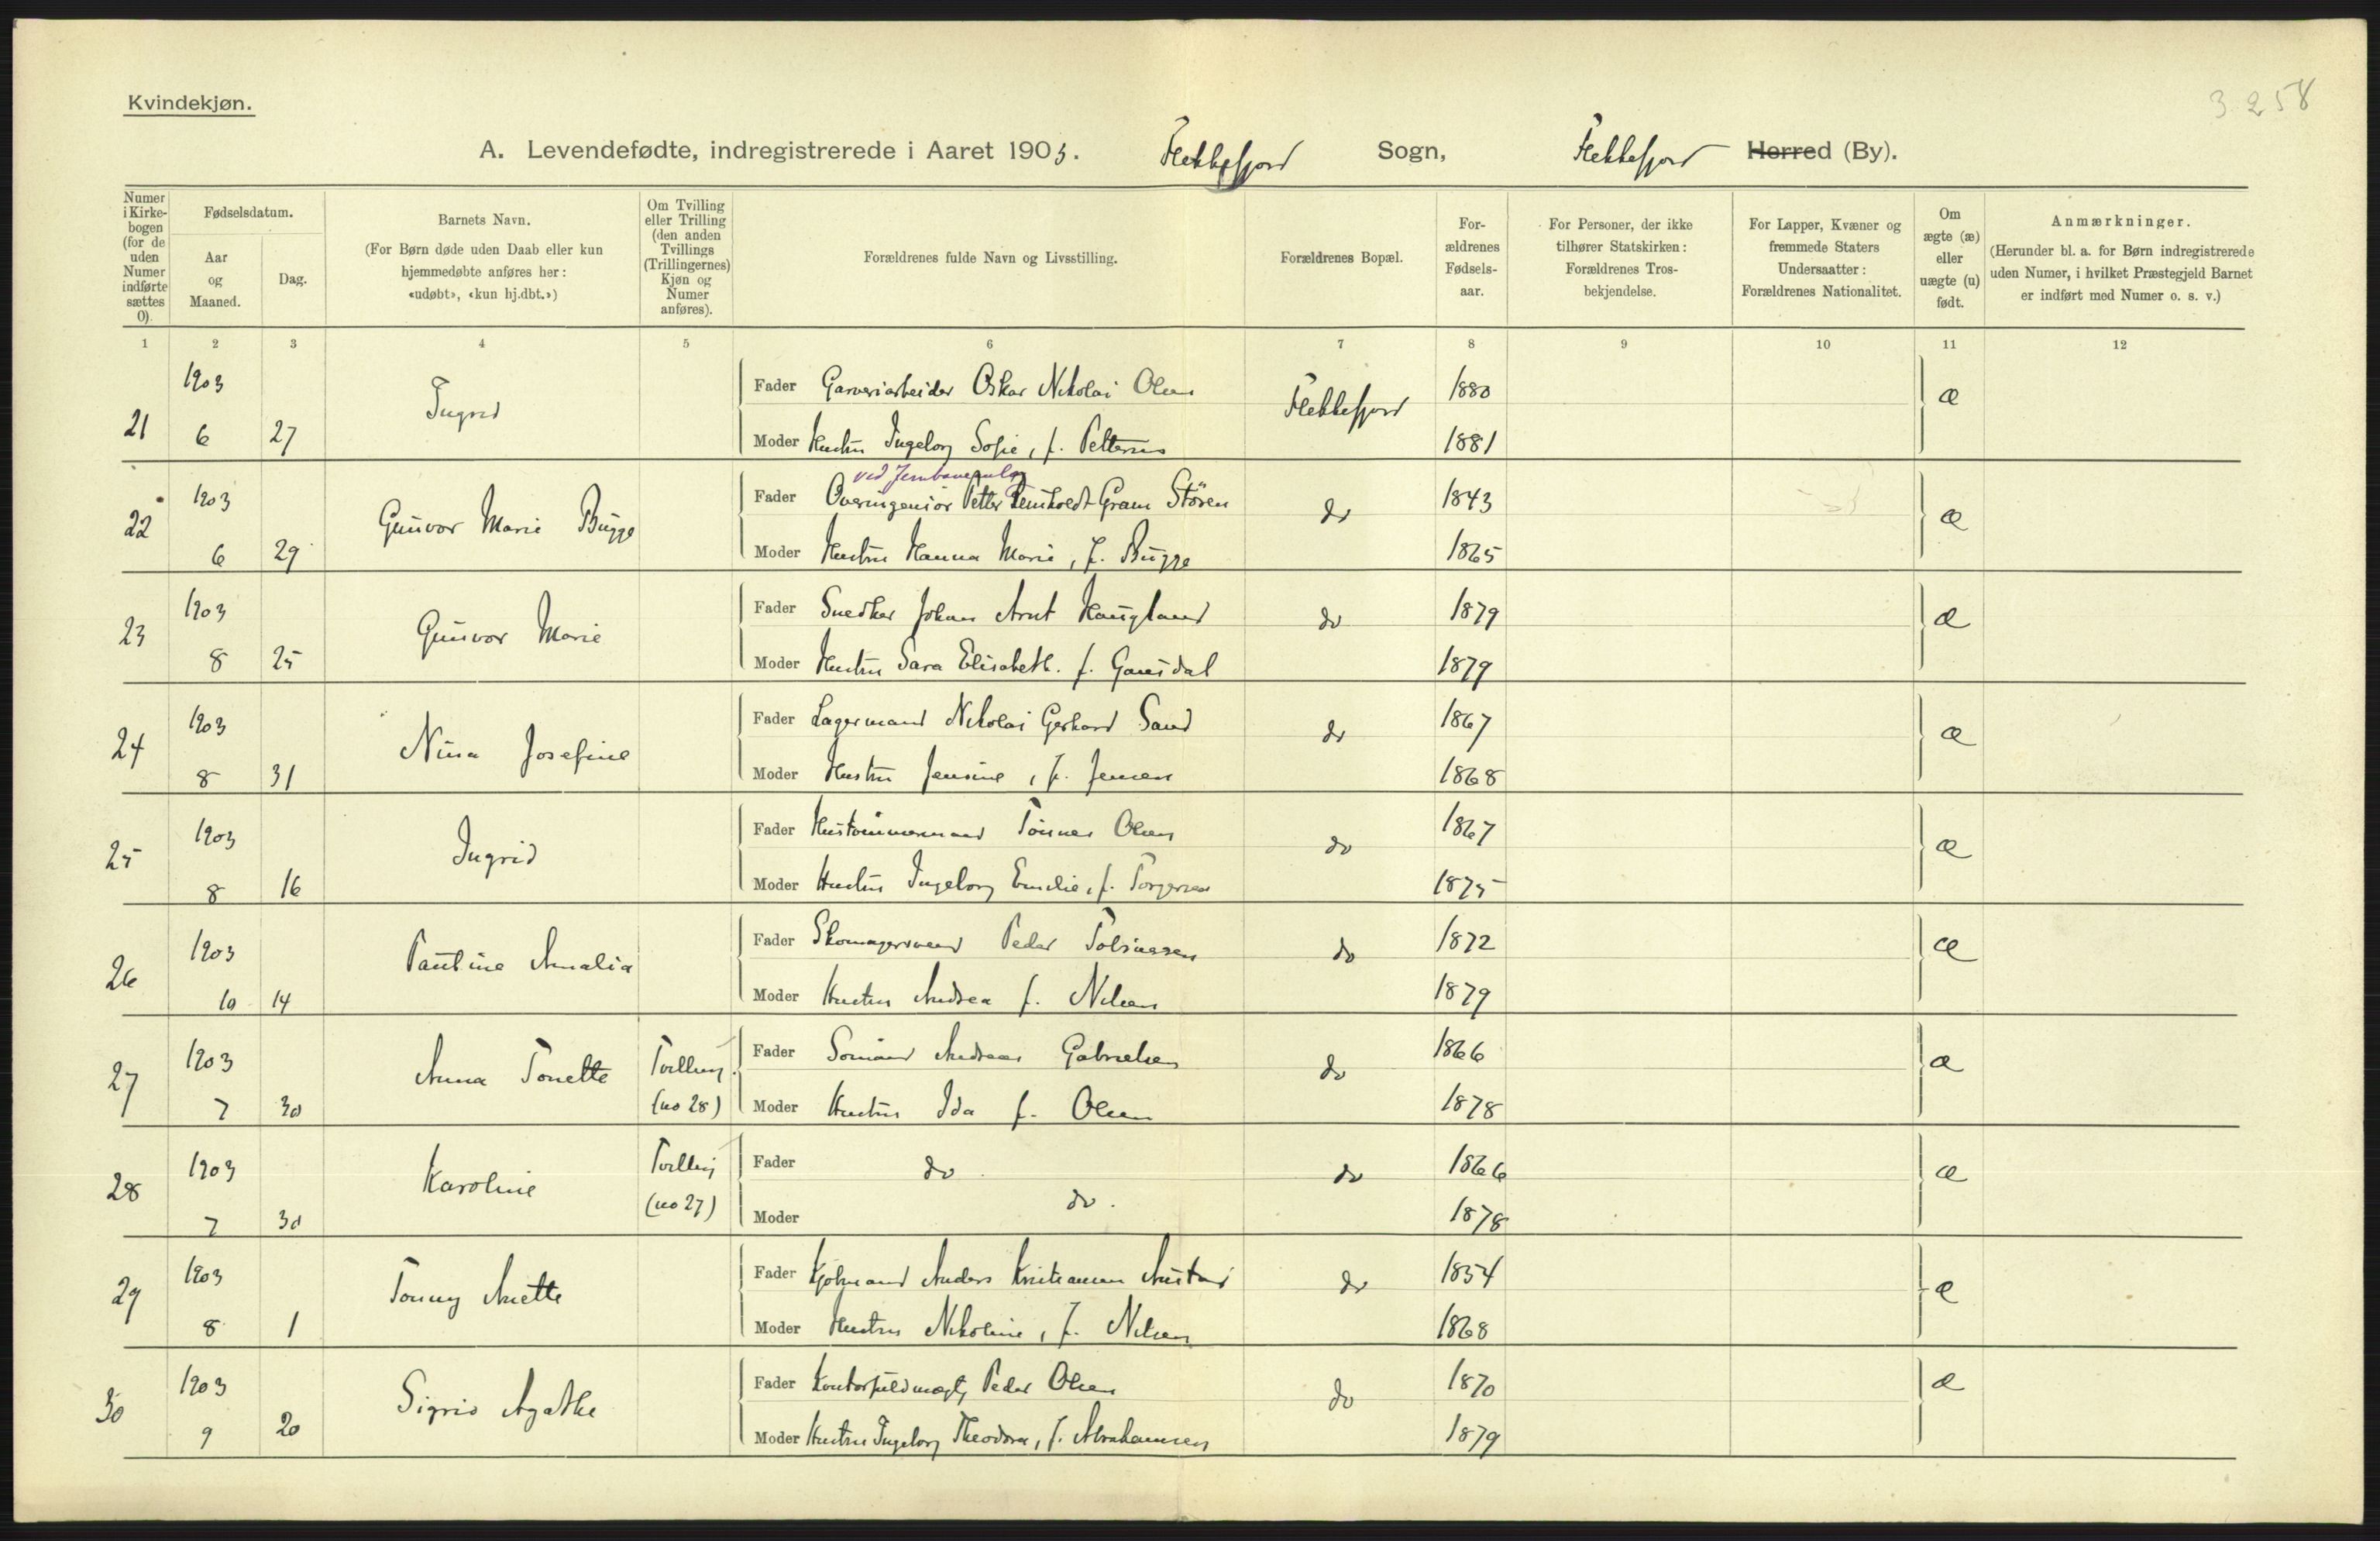 Kvindekjøn.
3.258
A. Levendefødte, indregistrerede i Aaret 1903. Flekkefjord Sogn, Flekkefjord Herred (By).
Numer i Kirkebogen (for de uden Numer indførte sættes 0).
Fødselsdatum.
Aar og Maaned.
Dag.
Barnets Navn.
(For Børn døde uden Daab eller kun hjemmedøbte anføres her: «udøbt», «kun hj.dbt.»)
Om Tvilling eller Trilling (den anden Tvillings (Trillingernes) Kjøn og Numer anføres).
Forældrenes fulde Navn og Livsstilling.
Forældrenes Bopæl.
Forældrenes Fødselsaar.
For Personer, der ikke tilhører Statskirken: Forældrenes Trosbekjendelse.
For Lapper, Kvæner og fremmede Staters Undersaatter: Forældrenes Nationalitet.
Om ægte (æ) eller uægte (u) født.
Anmærkninger.
(Herunder bl. a. for Børn indregistrerede uden Numer, i hvilket Præstegjeld Barnet er indført med Numer o. s. v.)
1 2 3 4 5 6 7 8 9 10 11 12
21 1903 6 27 Ingrid
Fader Garveriarbeider Oskar Nikolai Olsen Flekkefjord 1880 æ
Moder Hustru Ingeborg Sofie, f. Pettersen 1881
ved Jernbaneanlæg
22 1903 6 29 Gunvor Marie Bugge
Fader Overingeniør Petter Reinholdt Gram Stören do 1843 æ
Moder Hustru Hanna Marie, f. Bugge 1865
23 1903 8 25 Gunvor Marie
Fader Snedker Johan Arnt Haugland do 1879 æ
Moder Hustru Sara Elisabeth. f. 1879
24 1903 8 31 Nina Josefine
Fader Lagermand Nikolai Gerhard Sand do 1867 æ
Moder Hustru Jensine, f. Jensen 1868
25 1903 8 16 Ingrid
Fader Hustømmermand Tönnes Olsen do 1867 æ
Moder Hustru Ingeborg Emelie, f. Torgersen 1875
26 1903 10 14 Pauline Amalia
Fader Skomagersvend Peder Tobiassen do 1872 æ
Moder Hustru Andrea f. Nilsen 1879
27 1903 7 30 Anna Tonette Tvilling (no 28)
Fader Sömand Andreas Gabrielsen do 1866 æ
Moder Hustru Ida f. Olsen 1878
28 1903 7 30 Karoline Tvilling (no 27)
Fader do do 1866 æ
Moder do. 1878
29 1903 8 1 Tonny Anette
Fader Kjøbmand Anders Kristiansen Austad do 1854 æ
Moder Hustru Nikoline, f. Nilsen 1868
30 1903 9 20 Sigrid Agathe
Fader Kontorfuldmægtig Peder Olsen do 1870 æ
Moder Hustru Ingeborg Theodora, f. Abrahamsen 1879